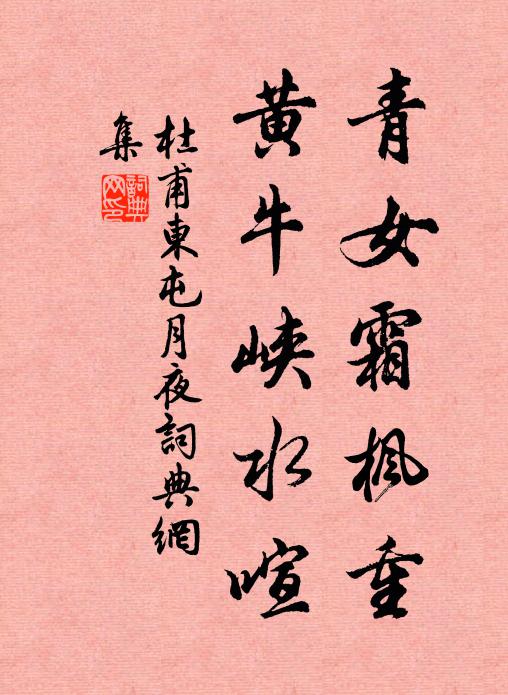 青女霜楓重
黄牛峽水喧
杜甫東屯月夜詞典網
集
詞典
网印